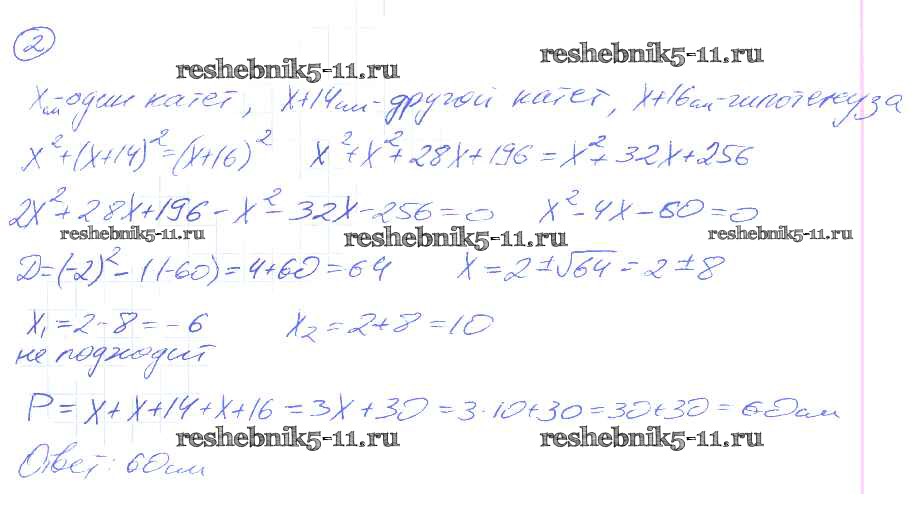 2
reshebnik5-11.ru reshebnik5-11.ru
X см - один катет, X+14 см - другой катет, X+16 см - гипотенуза
X²+(X+14)²=(X+16)² X²+X²+28X+196=X²+32X+256
2X²+28X+196-X²-32X-256=0 X²-4X-60=0
reshebnik5-11.ru reshebnik5-11.ru reshebnik5-11.ru
D=(-2)²-1(-60)=4+60=64 X=2±√64=2±8
X₁=2-8=-6 X₂=2+8=10
не подходит
P=X+X+14+X+16=3X+30=3·10+30=30+30=60 см
reshebnik5-11.ru reshebnik5-11.ru
Ответ: 60 см